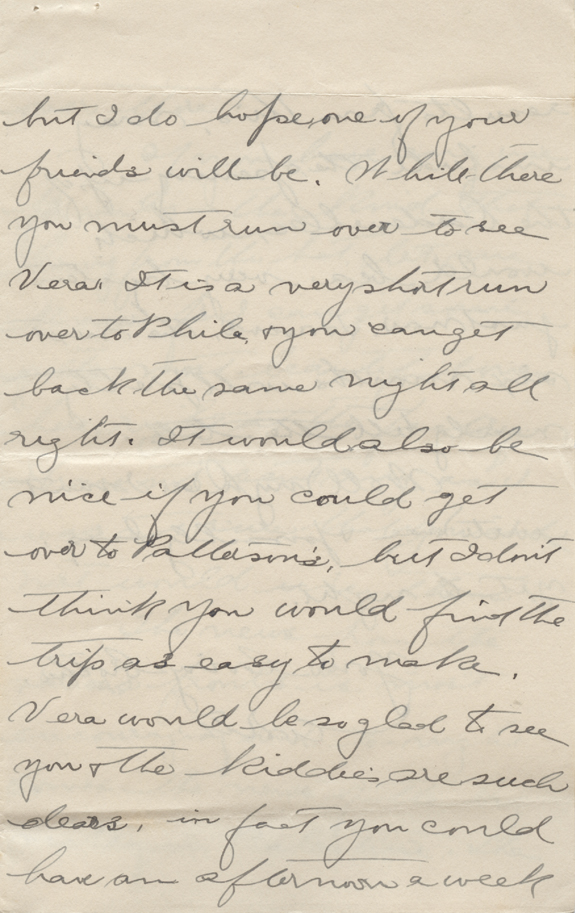 but I do hope, one of your
friends will be. While there
you must run over to see
Vera. It is a very short run
over to Phila, & you can get
back the same night all
right. It would also be
nice if you could get
over to Patterson's, but I don't
think you would find the
trip as easy to make.
Vera would be so glad to see
you & the kiddies are such
dears, in fact you could
have an afternoon a week